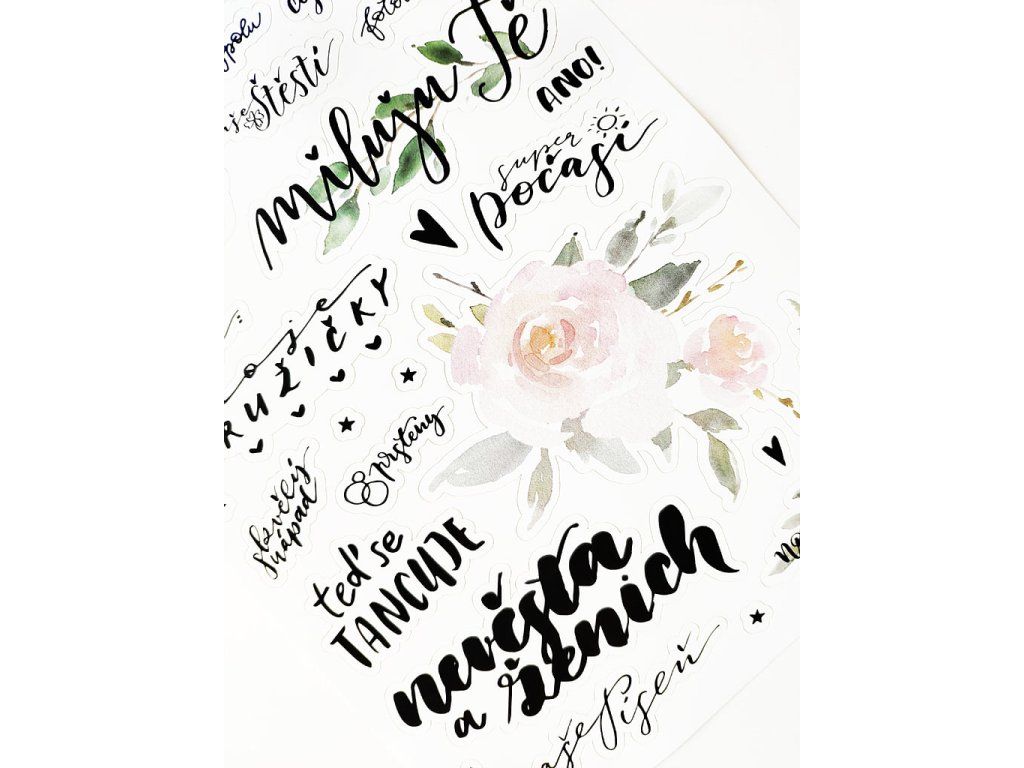 spolu
foto
Štěstí
miluju Tě
ANO!
super
počasí
RUŽIČKY
prsteny
skvělý
nápad
teď se
TANCUJE
nevěsta
a ženich
naše Píseň